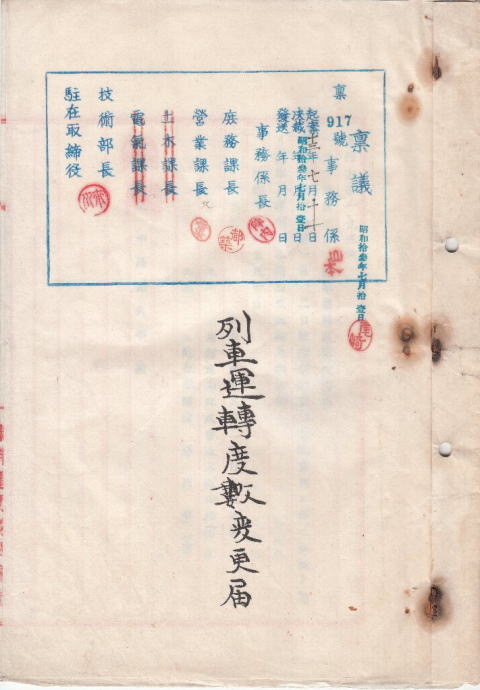 稟議
稟
917
號
事務係
起案十三年七月十一日
決裁昭和拾叁年七月拾壹日
發送 年 月 日
事務係長
庶務課長
營業課長
土木課長
電氣課長
技術部長
駐在取締役
昭和拾叁年七月拾壹日
列車運轉度數変更届